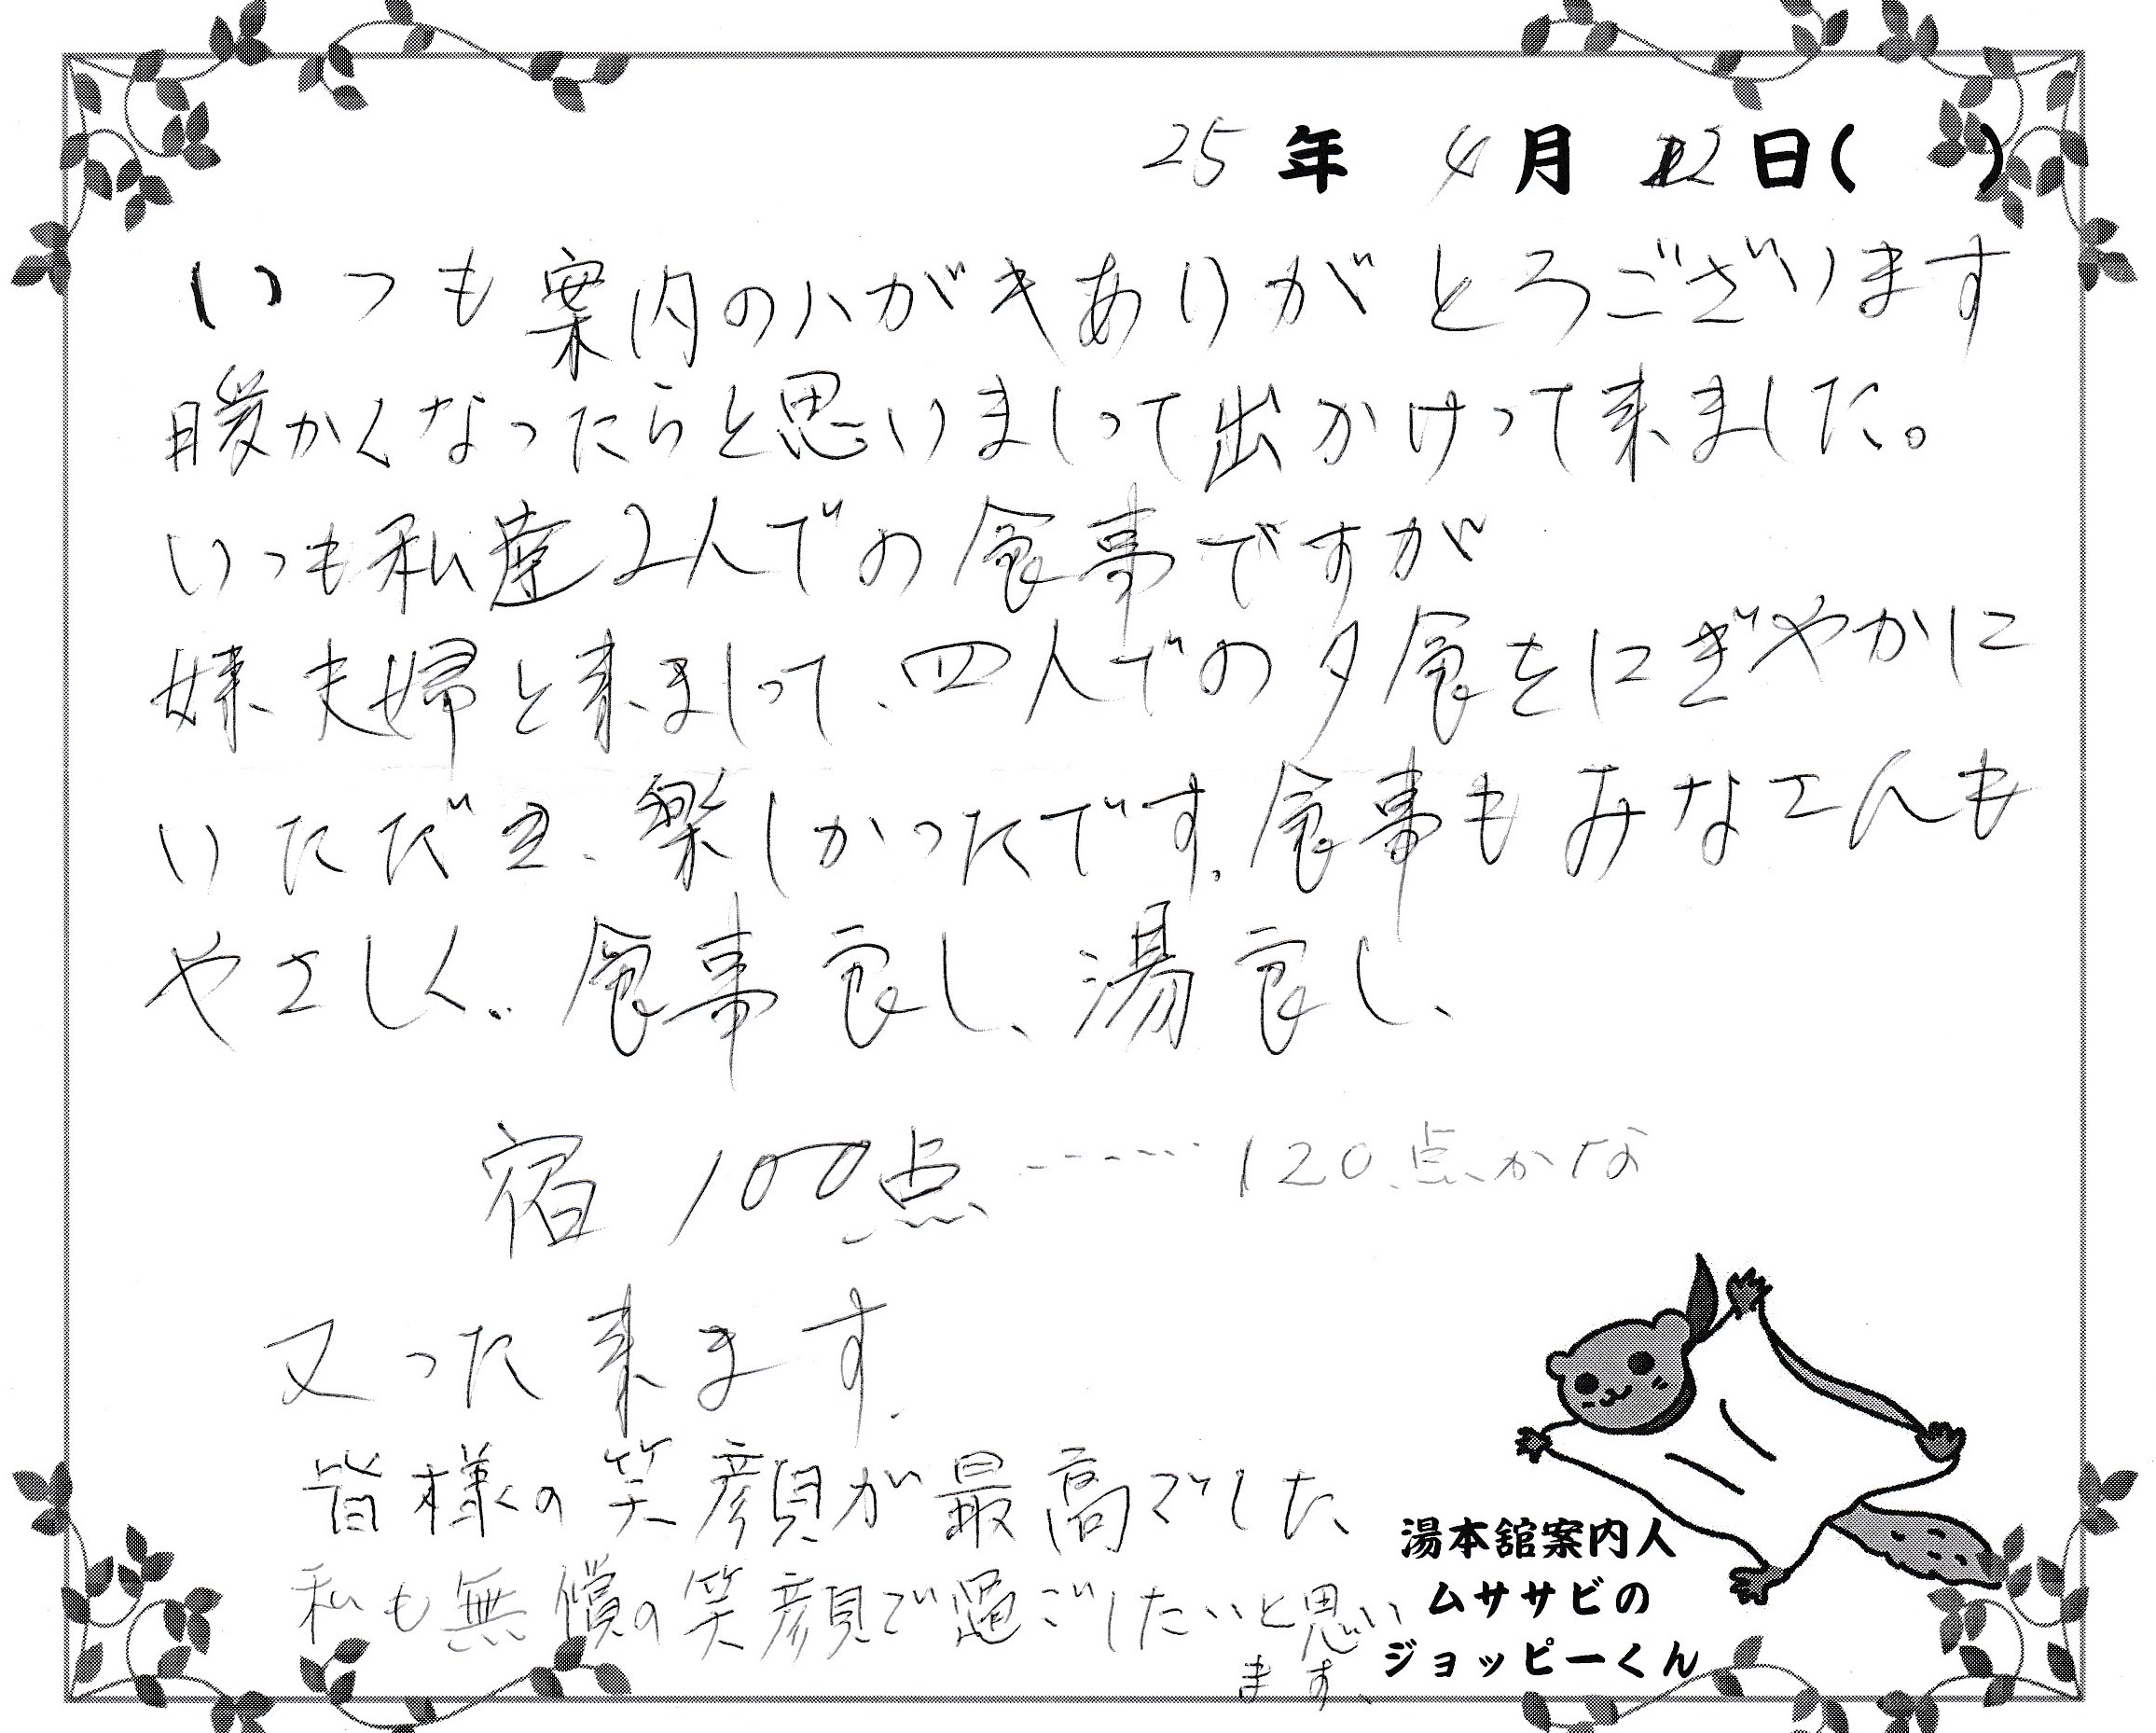 25年 4月 12日( )
いつも案内のハがきありがとうございます
暖かくなったらと思いまして出かけって来ました。
いつも私達2人での食事ですが
妹夫婦と来まして、四人での夕食をにぎやかに
いただき、楽しかったです。食事もみなさんも
やさしく、食事良し、湯良し、
宿 100点……120点かな
又った来ます。
皆様の笑顔が最高でした、
私も無償の笑顔で過ごしたいと思い
ます、
湯本舘案内人
ムササビの
ジョッピーくん